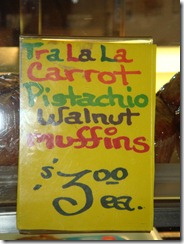 Tra La La
Carrot
Pistachio
Walnut
Muffins
$3.00
ea.